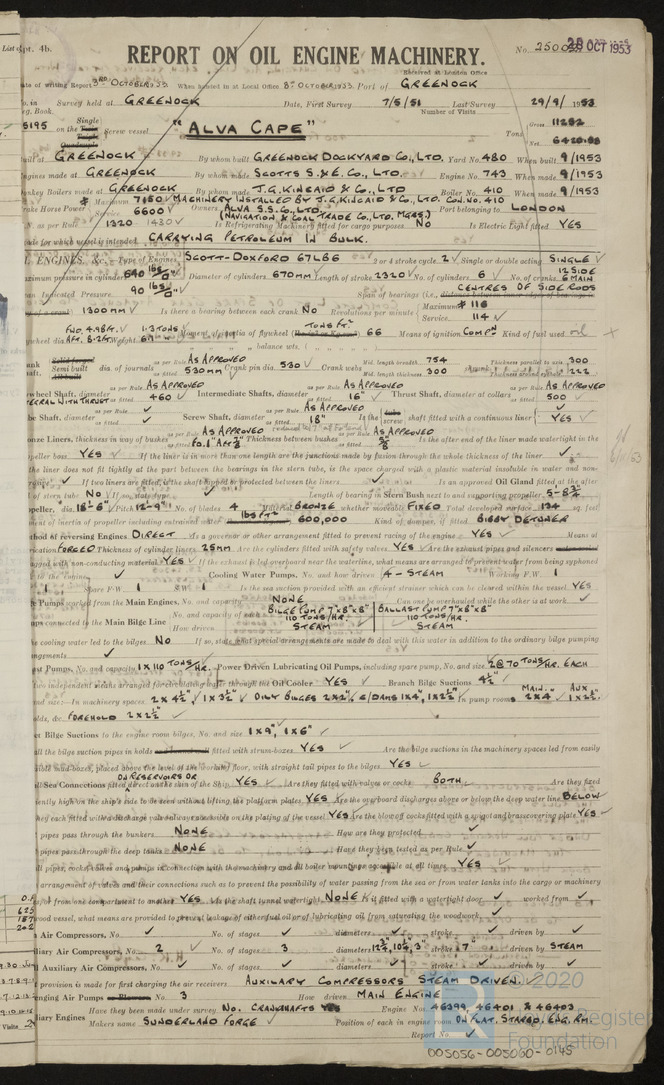 List
Rpt. 4b.
REPORT ON OIL ENGINE MACHINERY.
No. 25003
28 OCT 1953
Received at London Office
Date of writing Report 3RD OCTOBER 1953. When handed in at Local Office 8TH OCTOBER 1953. Port of GREENOCK
No. in Survey held at GREENOCK Date, First Survey 7/5/51 Last Survey 29/9/1953
Reg. Book. Number of Visits
5195 on the Single Screw vessel "ALVA CAPE" Tons Gross 11252 Net 6420.88
Built at GREENOCK By whom built GREENOCK DOCKYARD CO., LTD. Yard No. 480 When built 9/1953
Engines made at GREENOCK By whom made SCOTTS S. & E. CO., LTD. Engine No. 743 When made 9/1953
Donkey Boilers made at GREENOCK By whom made J. G. KINCAID & CO., LTD Boiler No. 410 When made 9/1953
Brake Horse Power Maximum 7150 MACHINERY INSTALLED BY J. G. KINCAID & CO., LTD. CON. NO. 410
Service 6600 Owners ALVA S.S. CO., LTD. (NAVIGATION & COAL TRADE CO., LTD. MGRS.) Port belonging to LONDON
N. as per Rule 1320 1430 Is Refrigerating Machinery fitted for cargo purposes NO Is Electric Light fitted YES
Trade for which vessel is intended CARRYING PETROLEUM IN BULK.
OIL ENGINES, &c. Type of Engines SCOTT-DOXFORD 67LB6 2 or 4 stroke cycle 2 Single or double acting SINGLE
Maximum pressure in cylinders 640 lbs/□" Diameter of cylinders 670MM Length of stroke 2320 No. of cylinders 6 No. of cranks 12 SIDE 6 MAIN
Mean Indicated Pressure 90 lbs/□" Span of bearings (i.e., CENTRES OF SIDE RODS
1300MM Is there a bearing between each crank NO Revolutions per minute Maximum 116 Service 114
FWD. 4.98FT. AFT. 8.2FT Weight 1.3 TONS Moment of inertia of flywheel TONS FT² 66 Means of ignition COMPN Kind of fuel used oil
balance wts.
Crank Semi built dia. of journals as per Rule AS APPROVED as fitted 530MM Crank pin dia. 530 Crank webs Mid. length breadth 754 Mid. length thickness 300 Thickness parallel to axis 300 Thickness around eyehole 222
Flywheel Shaft, diameter as per Rule AS APPROVED as fitted 460 Intermediate Shafts, diameter as per Rule AS APPROVED as fitted 16" Thrust Shaft, diameter at collars as per Rule AS APPROVED as fitted 500
Tube Shaft, diameter as per Rule as fitted Screw Shaft, diameter as per Rule AS APPROVED as fitted 18" Is the screw shaft fitted with a continuous liner YES
Bronze Liners, thickness in way of bushes as per Rule AS APPROVED Thickness between bushes as per Rule AS APPROVED as fitted 5/8 Is the after end of the liner made watertight in the
propeller boss YES If the liner is in more than one length are the junctions made by fusion through the whole thickness of the liner ✓
the liner does not fit tightly at the part between the bearings in the stern tube, is the space charged with a plastic material insoluble in water and non-
✓ If two liners are fitted, is the shaft lapped or protected between the liners ✓ Is an approved Oil Gland fitted at the after
of stern tube NO If so, state type ✓ Length of bearing in Stern Bush next to and supporting propeller 5-8¾
Propeller, dia. 18'-6" Pitch 12'-9" No. of blades 4 Material BRONZE whether Moveable FIXED Total developed surface 134 sq. feet
Moment of inertia of propeller including entrained water LBS FT² 600,000 Kind of damper, if fitted BIBBY DETUNER
Method of reversing Engines DIRECT Is a governor or other arrangement fitted to prevent racing of the engine YES Means of
lubrication FORCED Thickness of cylinder liners 25MM Are the cylinders fitted with safety valves YES Are the exhaust pipes and silencers
lagged with non-conducting material YES If the exhaust is led overboard near the waterline, what means are arranged to prevent water from being syphoned
to the engine ✓ Cooling Water Pumps, No. and how driven 4 - STEAM Working F.W. 1
1 Spare F.W. 1 Is the sea suction provided with an efficient strainer which can be cleared within the vessel YES
Bilge Pumps worked from the Main Engines, No. and capacity NONE Can one be overhauled while the other is at work ✓
Pumps connected to the Main Bilge Line No. and capacity of each BILGE PUMP 7"x8"x8" 110 TONS/HR. BALLAST PUMP 7"x8"x8" 110 TONS/HR.
How driven STEAM STEAM
Is cooling water led to the bilges NO If so, state what special arrangements are made to deal with this water in addition to the ordinary bilge pumping
arrangements ✓
Ballast Pumps, No. and capacity 1 x 110 TONS/HR. Power Driven Lubricating Oil Pumps, including spare pump, No. and size 2 @ 70 TONS/HR. EACH
two independent means arranged for circulating water through the Oil Cooler YES Branch Bilge Suctions 4½"
and size:—In machinery spaces 2x4½", 1x3½" OILY BILGES 2x2½", C/DAMS 1x4", 1x2½" In pump room MAIN. 2x4" AUX 1x2½"
holds, &c. FOREHOLD 2x2½"
Bilge Suctions to the engine room bilges, No. and size 1x9", 1x6"
all the bilge suction pipes in holds fitted with strum-boxes YES Are the bilge suctions in the machinery spaces led from easily
accessible mud-boxes, placed above the level of the working floor, with straight tail pipes to the bilges YES
all Sea Connections fitted direct on the skin of the ship ON RESERVOIRS OR YES Are they fitted with valves or cocks BOTH Are they fixed
sufficiently high on the ship's side to be seen without lifting the platform plates YES Are the overboard discharges above or below the deep water line BELOW
they each fitted with a discharge valve always accessible on the plating of the vessel YES Are the blow off cocks fitted with a spigot and brass covering plate YES
pipes pass through the bunkers NONE How are they protected ✓
pipes pass through the deep tanks NONE Have they been tested as per Rule ✓
all pipes, cocks, valves and pumps in connection with the machinery and all boiler mountings accessible at all times YES
arrangement of valves and their connections such as to prevent the possibility of water passing from the sea or from water tanks into the cargo or machinery
or from one compartment to another YES Is the shaft tunnel watertight NONE Is it fitted with a watertight door ✓ worked from ✓
wood vessel, what means are provided to prevent leakage of either fuel oil or lubricating oil from saturating the woodwork ✓
Air Compressors, No. ✓ No. of stages ✓ diameters ✓ stroke ✓ driven by ✓
Auxiliary Air Compressors, No. 2 No. of stages 3 diameters 12¾", 10¾", 3" stroke 7" driven by STEAM
Auxiliary Air Compressors, No. ✓ No. of stages ✓ diameters ✓ stroke ✓ driven by ✓
provision is made for first charging the air receivers AUXILIARY COMPRESSORS STEAM DRIVEN.
Scavenging Air Pumps No. 3 How driven MAIN ENGINE
Auxiliary Engines Have they been made under survey YES No. CRANKSHAFTS Engine Nos. 46399, 46401 & 46403
Makers name SUNDERLAND FORGE Position of each in engine room ON FLAT. STARBD. ENG. RM.
Report No. ✓
© 2020
Lloyd's Register
Foundation
005056-005060-0145